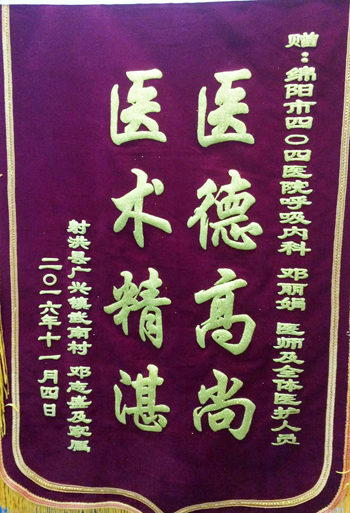 赠：绵阳市四〇四医院呼吸内科 邓丽娟 医师及全体医护人员
医德高尚
医术精湛
射洪县广兴镇紫南村 邓志盛及家属
二〇一六年十一月四日